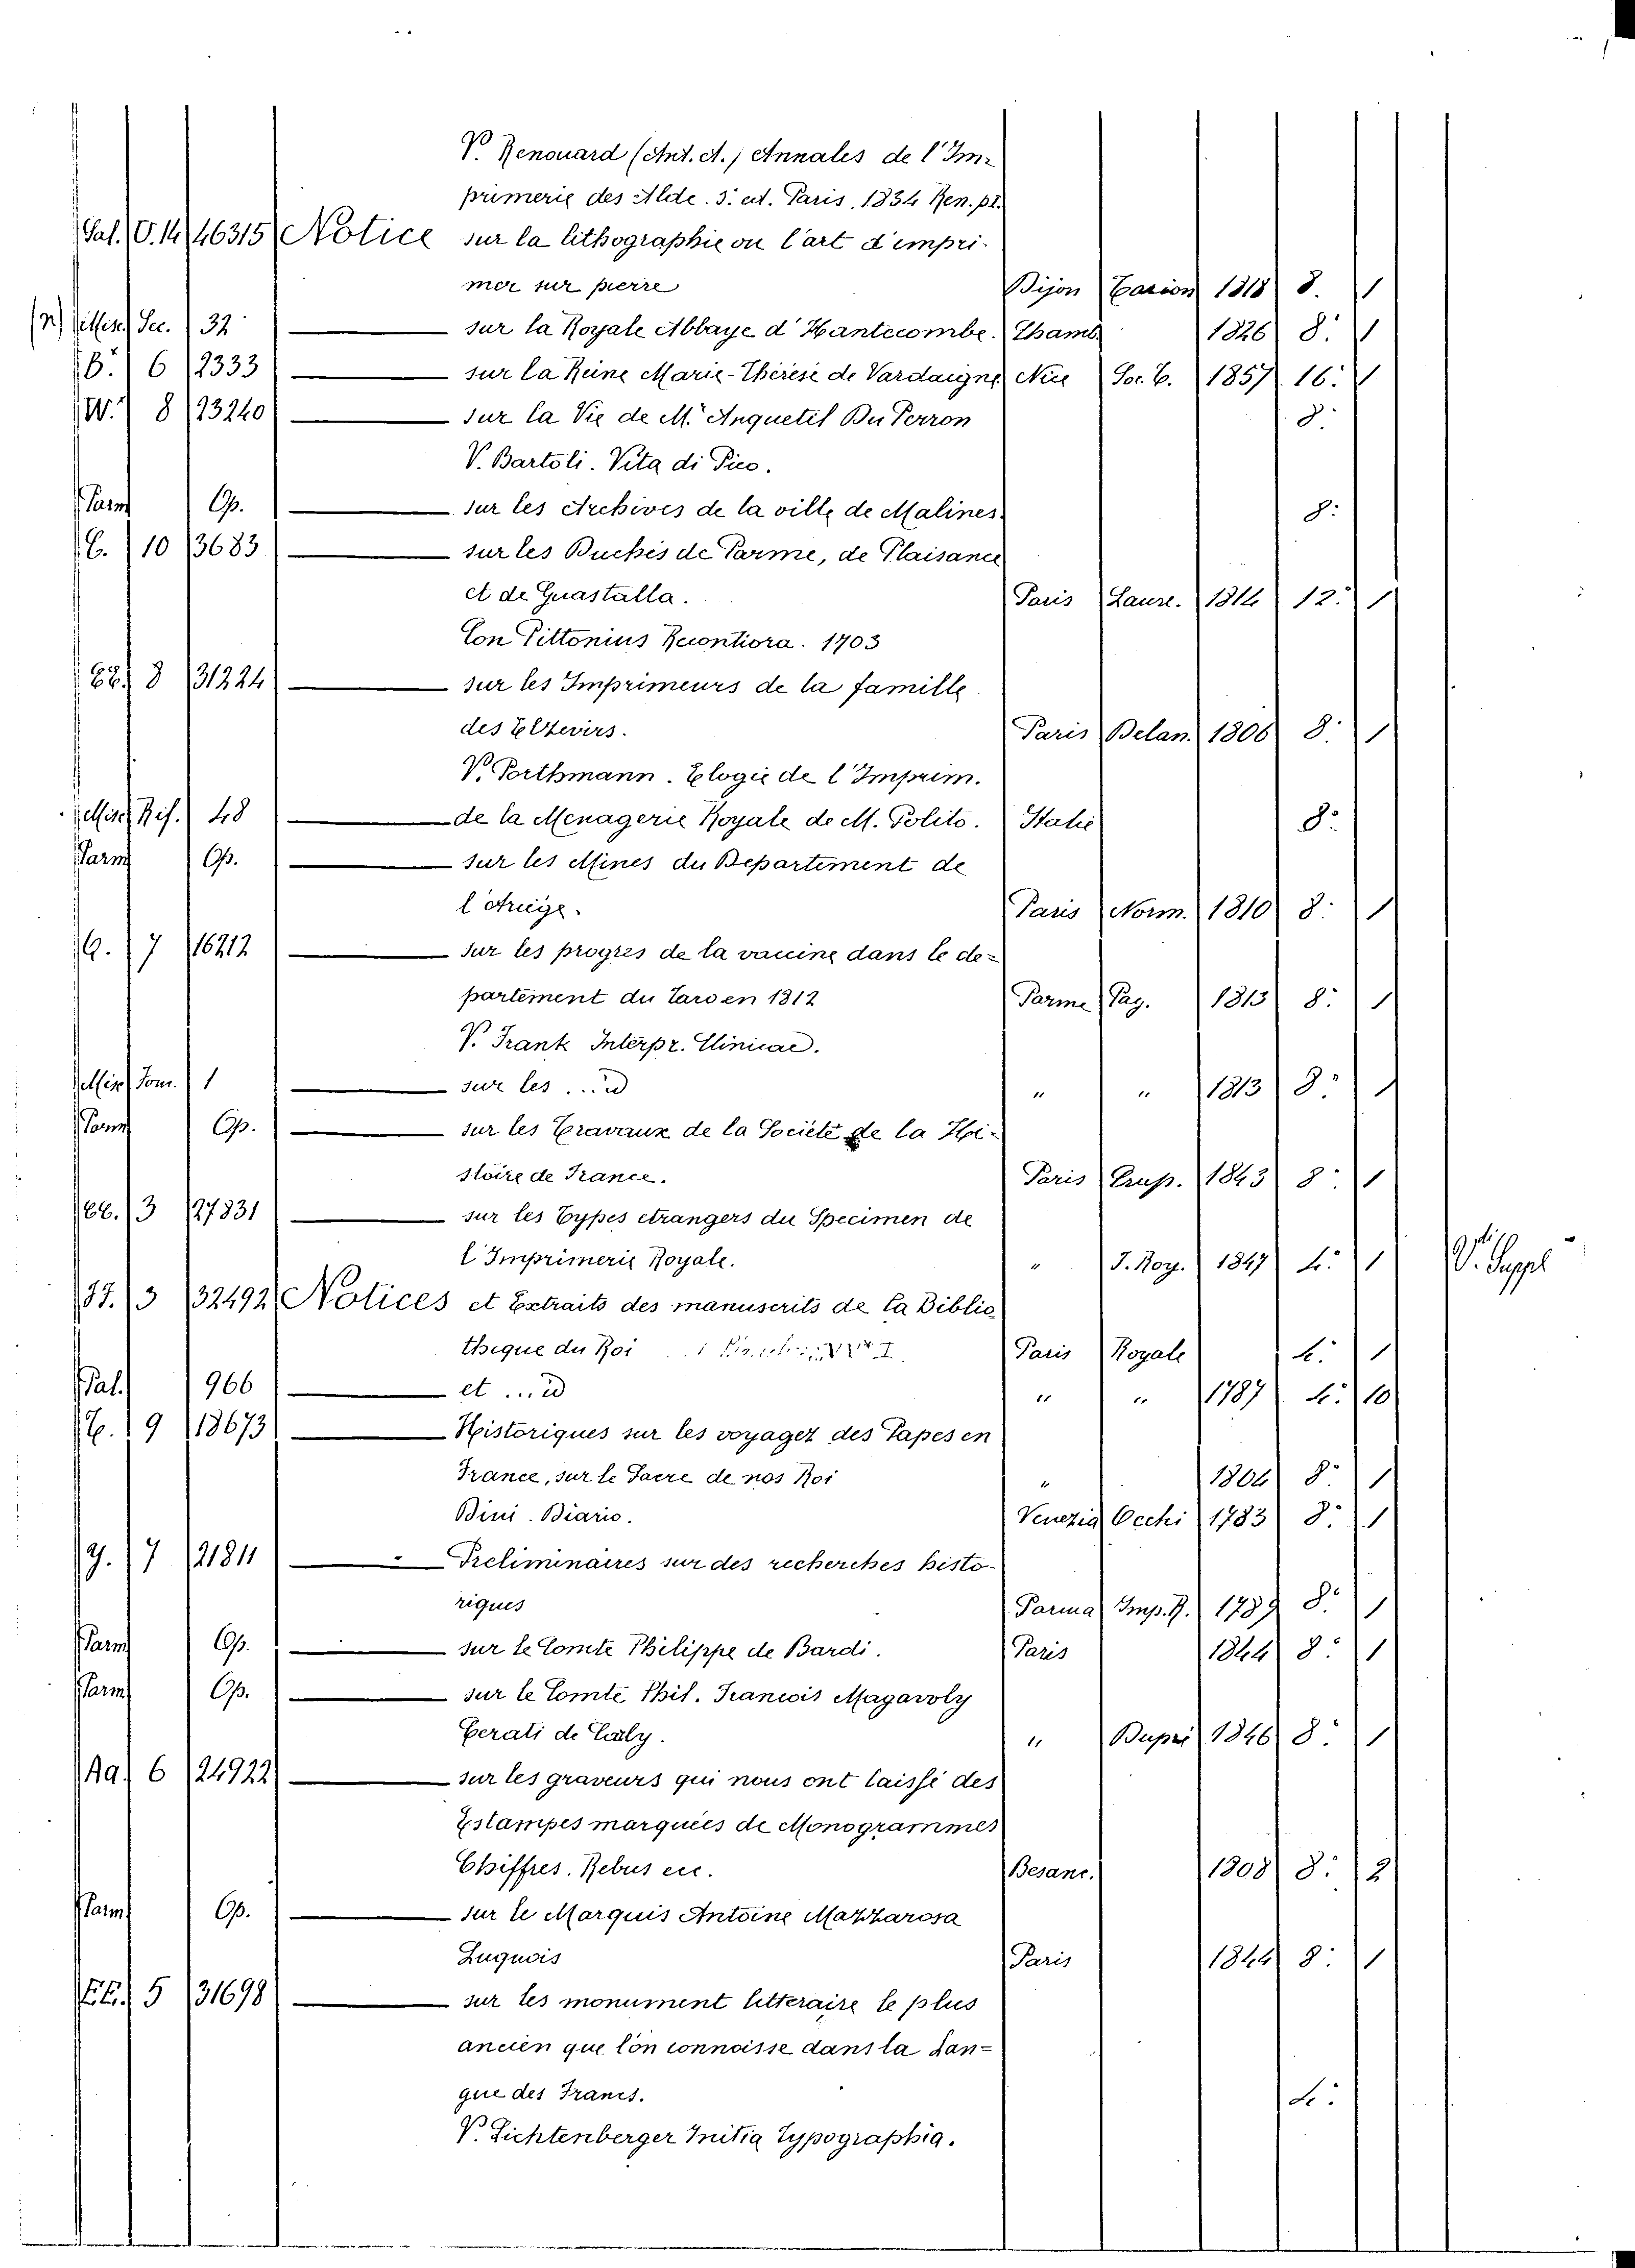 V. Renouard (Ant. A.) Annales de l'Im-
primerie des Alde. 3. ed. Paris. 1834 Ren. pt.
Sal. V. 14 46315 Notice sur la lithographie ou l'art d'impri-
mer sur pierre Dijon Carion 1818 8. 1
(n) Misc. Sec. 32 sur la Royale Abbaye d'Hautecombe. Chamb. 1826 8. 1
B. 6 2333 sur la Reine Marie-Thérèse de Sardaigne Nice Soc. T. 1857 16. 1
W. 8 23240 sur la Vie de M. Anquetil Du Perron 8.
V. Bartoli. Vita di Pico.
Parm Op. sur les Archives de la ville de Malines. 8.
C. 10 3683 sur les Duchés de Parme, de Plaisance
et de Guastalla. Paris Laure. 1814 12. 1
Con Pittonius Recontiora. 1703
8 31224 sur les Imprimeurs de la famille
des Elzevirs. Paris Delan. 1806 8. 1
V. Porthmann. Eloge de l'Imprim.
Misc. Rif. 48 de la Menagerie Royale de M. Polito. Italie 8.
Parm Op. sur les Mines du Departement de
l'Ariège. Paris Norm. 1810 8. 1
Q. 7 16212 sur les progrès de la vaccine dans le de-
partement du Taro en 1812 Parme Pag. 1813 8. 1
V. Frank Interpr. Clinicae.
Misc. Tom. 1 sur les ... id " " 1813 8. 1
Parm Op. sur les Travaux de la Societé de la Hi-
stoire de France. Paris Crap. 1843 8. 1
3 27831 sur les Types etrangers du Specimen de
l'Imprimerie Royale. " I. Roy. 1847 4. 1 V. Suppl
3 32492 Notices et Extraits des manuscrits de la Biblio
theque du Roi Paris Royale 4. 1
Pal. 966 et ... id " " 1787 4. 10
T. 9 18673 Historiques sur les voyages des Papes en
France, sur le Sacre de nos Roi " 1804 8. 1
Bini. Diario. Venezia Occhi 1783 8. 1
Y. 7 21811 Preliminaires sur des recherches histo-
riques Parma Imp. R. 1789 8. 1
Parm Op. sur le Comte Philippe de Bardi. Paris 1844 8. 1
Parm Op. sur le Comte Phil. François Magavoly
Cerati de Caly. " Dupré 1846 8. 1
Aa. 6 24922 sur les graveurs qui nous ont laissé des
Estampes marquées de Monogrammes
Chiffres, Rebus ecc. Besanc. 1808 8. 2
Parm Op. sur le Marquis Antoine Mazzarosa
Luquois Paris 1844 8. 1
EE. 5 31698 sur les monument litteraire le plus
ancien que l'on connoisse dans la Lan-
gue des Francs. 4.
V. Lichtenberger Initia Typographia.